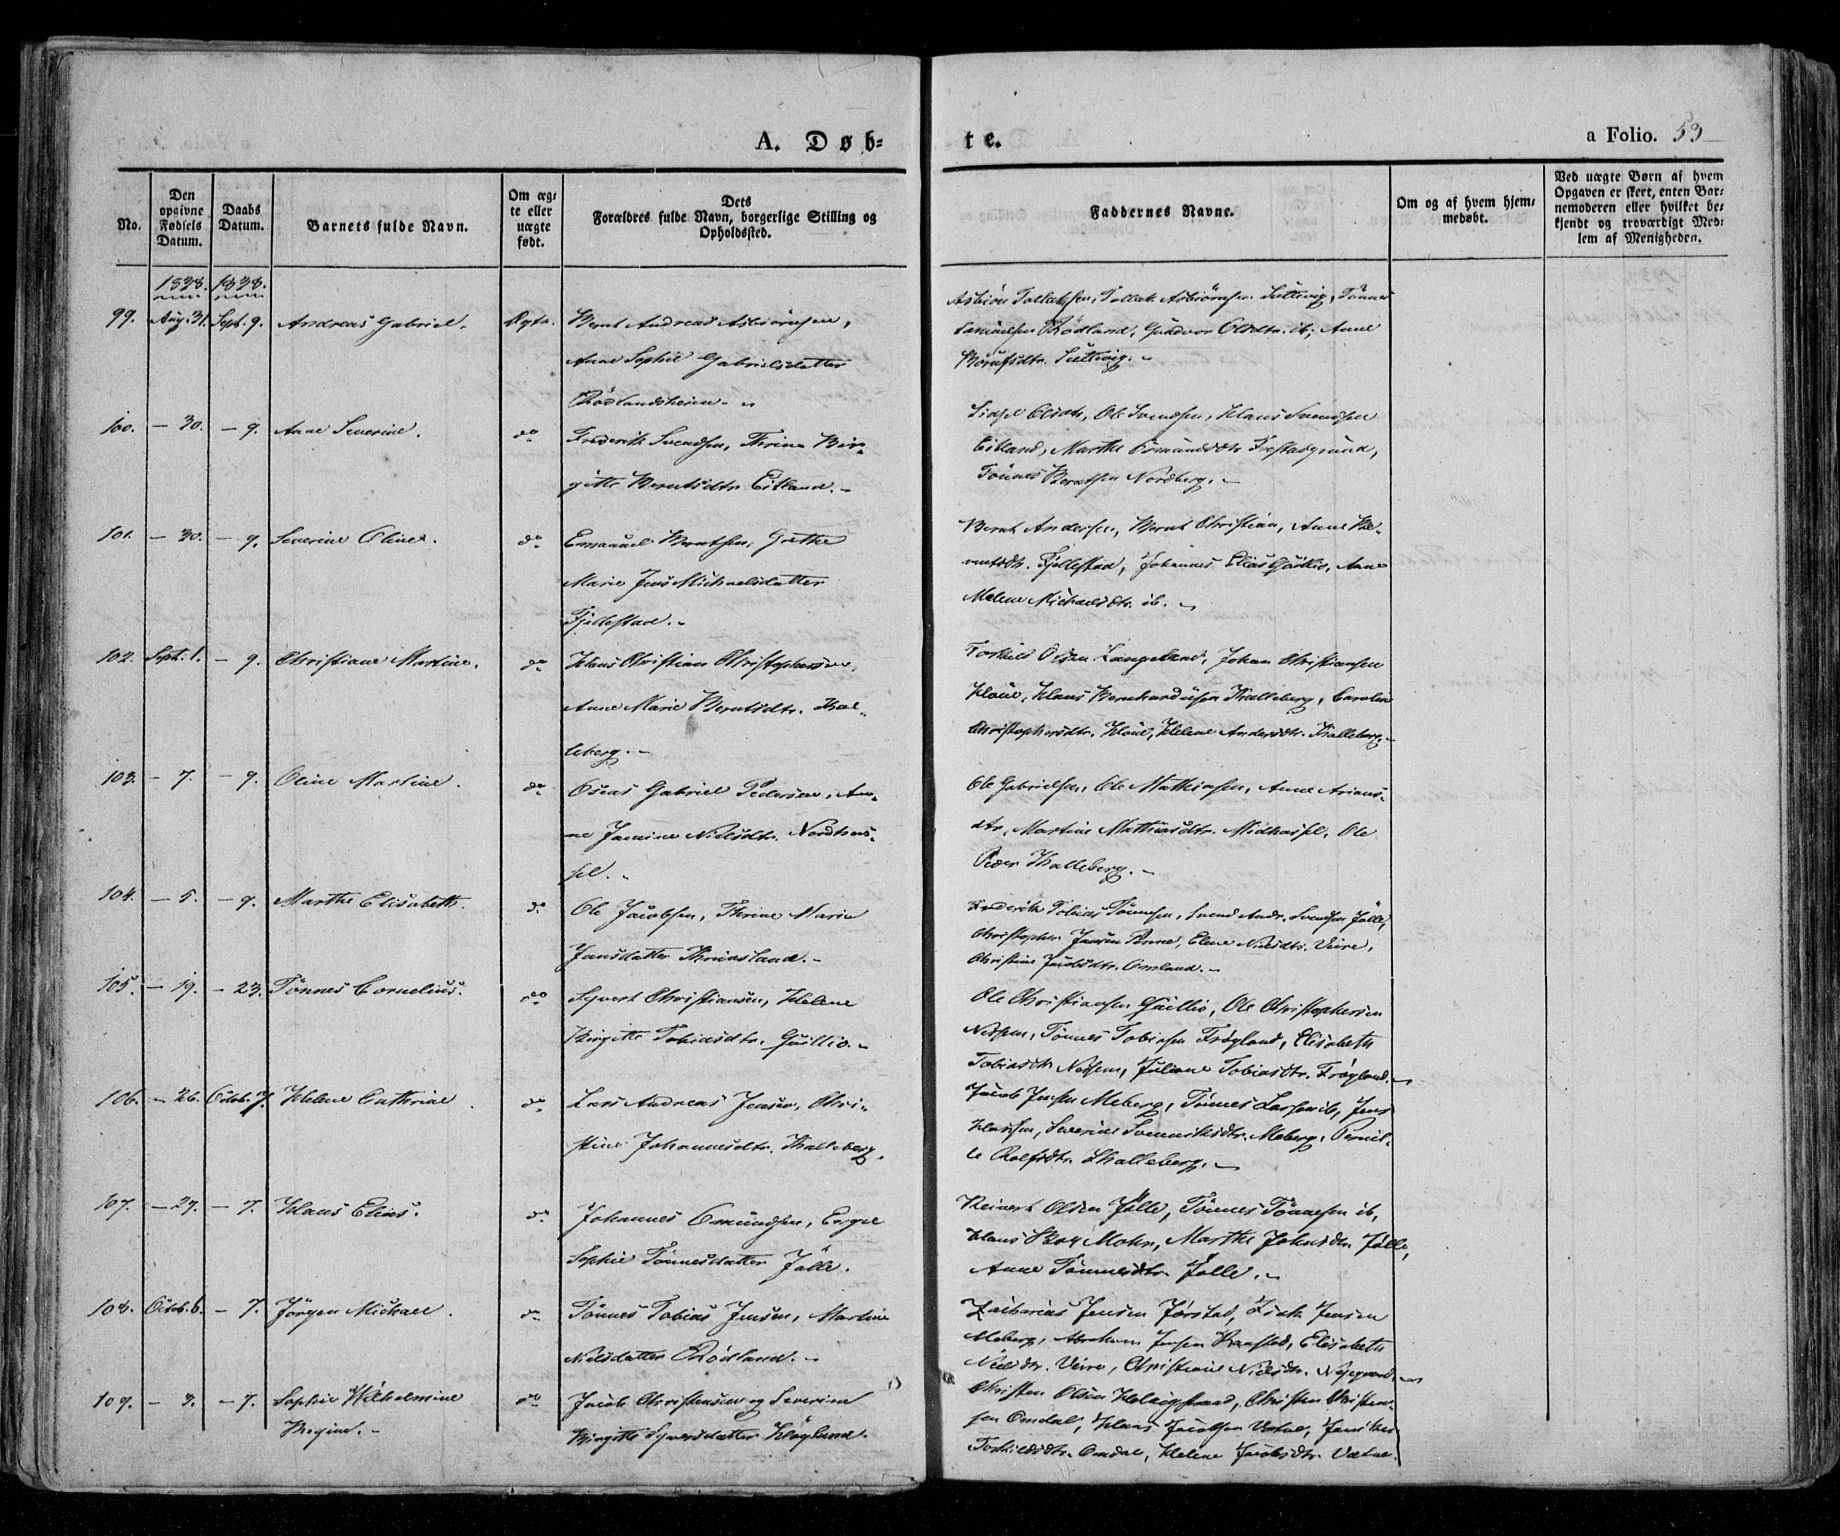 A. Døb-
te.
a Folio. 53
No.
Den opgivne Fødsels Datum.
Daabs Datum.
Barnets fulde Navn.
Om ægte eller uægte født.
Dets Forældres fulde Navn, borgerlige Stilling og Opholdssted.
Faddernes Navne.
Om og af hvem hjemmedøbt.
Ved uægte Børn af hvem Opgaven er skeet, enten Barnemoderen eller hvilket bekjendt og troværdigt Medlem af Menigheden.
1838. 1838.
99. Aug. 31. Sept. 9. Andreas Gabriel. Ægte. Bernt Andreas Asbiörnsen,
Anne Sophie Gabrielsdatter
Rödlandsheien.
Asbiörn Tollaksen, Tollak Asbiörnsen Tönnes
Rödland, Gundvor Olsdtr. ib, Anne
100. - 30. - 9. Anne Severine. do Frederik Svendsen, Thrine Bir-
gitte Berntsdtr. Eitland.
Sidsel Olsdtr, Ole Svendsen, Klaus Svendsen
Eitland, Marthe Frestadgrund,
Tönnes Berntsen Nordberg.
101. - 30. - 9. Severine Oline. do Emanuel Berntsen, Grethe
Marie Jens Michaelsdatter
Fjellestad.
Bernt Andersen, Bernt Christian, Anne Be-
rentsdtr. Fjellestad, Johannes Elias Anne
Malene Michaelsdtr. ib.
102. Sept. 1. - 9. Christiane Martine. do Klaus Christian Christophersen,
Anne Marie Berntsdtr. Kal-
leberg.
Torkild Olsen Langeland, Johan Christiansen
Klaus Bernhardusen Kalleberg, Caroline
Christophersdtr. Helene Andersdtr. Kalleberg.
103. - 7. - 9. Oline Martine. do Oseas Gabriel Pedersen, An-
ne Janine Nielsdtr. Nordhas-
sel.
Ole Gabrielsen, Ole Mathiasen, Anne Arians-
dtr, Martine Mathiasdtr. Midhassel, Ole
Peder Kalleberg.
104. - 5. - 9. Marthe Elisabeth. do Ole Jacobsen, Thrine Marie
Jansdatter
Frederik Tobias Tönnesen, Svend Andr. Svendsen Jölle,
Christopher Jansen Elene Nielsdtr. Veire,
Christine Jacobsdtr. Omland.
105. - 19. - 23. Tönnes Cornelius. do Syvert Christiansen, Helene
Birgitte Tobiasdtr.
Ole Christiansen Ole Christophersen
Tönnes Tobiasen Frøyland, Elisabeth
Tobiasdtr. Juliane Tobiasdtr. Frøyland.
106. - 26. Octob. 7. Helene Cathrine. do Lars Andreas Jensen, Chri-
stine Johannesdtr. Kalleberg.
Jacob Jensen Meberg, Tönnes Larsen ib, Jens
Klausen, Severine Svenningsdtr. Meberg, Pernil-
le Rolfsdtr. Kalleberg.
107. - 27. - 7. Klaus Elias. do Johannes Omundsen, Engel
Sophie Tönnesdatter Jölle.
Reinert Olsen Jölle, Tönnes Tönnesen ib,
Klaus Mohn, Marthe Johnsdtr. Jölle,
Anne Tönnesdtr. Jölle.
108. Octob. 6. - 7. Jörgen Michael. do Tönnes Tobias Jensen, Martine
Nielsdatter Rödland.
Zacharias Jensen Jørstad, Jensen
Meberg, Abraham Jensen Elisabeth
Nielsdtr. Veire, Christiane Nielsdtr.
109. - 3. - 7. Sophie Wilhelmine
Regine. do Jacob Christensen og Severine
Birgitte Syvertsdatter Høyland.
Christen Olsen Christen Christen-
sen Omdal, Klaus Jacobsen
Torkildsdtr. Omdal, Helene Jacobsdtr.